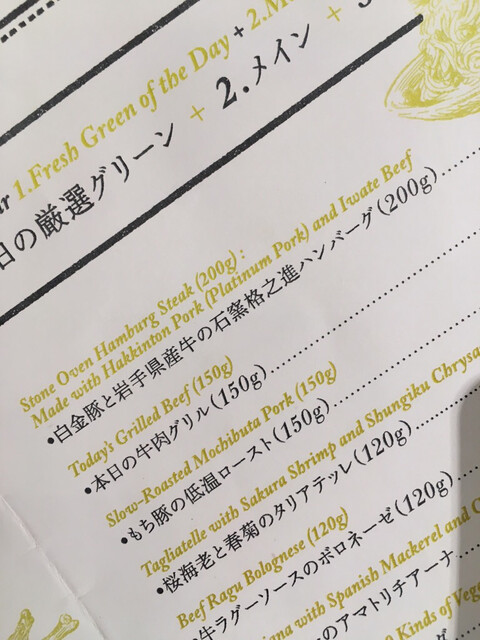 1.Fresh Green of the Day + 2.M
日の厳選グリーン + 2.メイン +
Stone Oven Hamburg Steak (200g) :
Made with Hakkinton Pork (Platinum Pork) and Iwate Beef
•白金豚と岩手県産牛の石窯格之進ハンバーグ(200g)
Today's Grilled Beef (150g)
•本日の牛肉グリル(150g)
Slow-Roasted Mochibuta Pork (150g)
•もち豚の低温ロースト(150g)
Tagliatelle with Sakura Shrimp and Shungiku Chrysa
•桜海老と春菊のタリアテッレ(120g)
Beef Ragu Bolognese (120g)
牛ラグーソースのボロネーゼ(120g)
iana with Spanish Mackerel and C
のアマトリチアーナ
0 Kinds of Vege